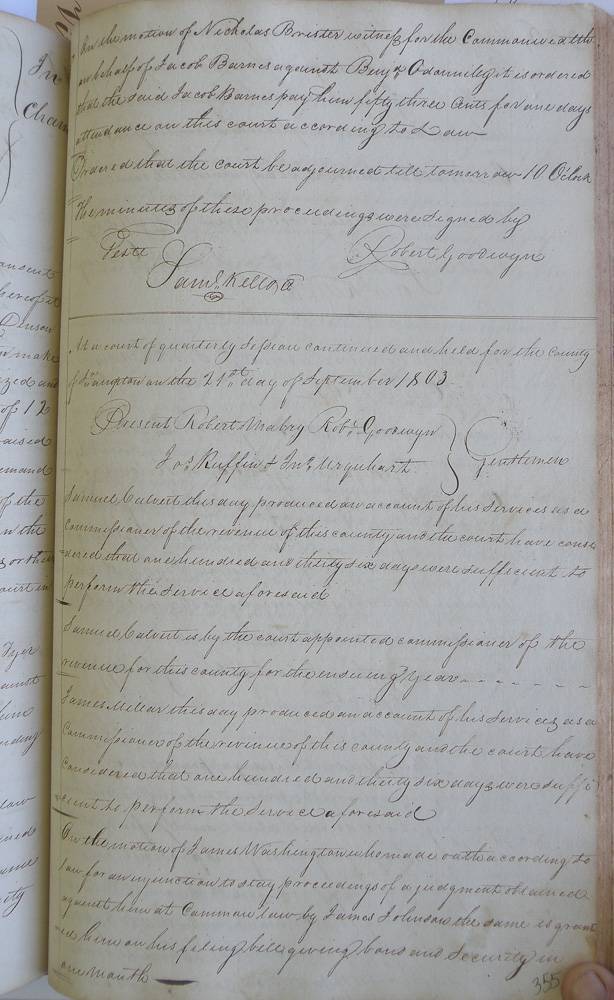 On the motion of Nicholas Brister witness for the Commonwealth
on behalf of Jacob Barnes against Benja Odaniel it is ordered
that the said Jacob Barnes pay him fifty three Cents for one days
attendance on this court according to Law
Ordered that the court be adjourned till tomorrow 10 OClock
The minutes of these proceedings were Signed by
Teste Robert Goodwyn
Saml. Kello
At a court of quarterly Session continued and held for the county
of Sohampton on the 21st day of September 1803
Present Robert Mabry Robt. Goodwyn
Jos. Ruffin & Jno. Urquhart Gentlemen
Samuel Calvert this day produced an account of his Services as a
commissioner of the revenue of this county and the court have consi
dered that one hundred and thirty six days were sufficient to
perform the Service aforesaid
Samuel Calvert is by the court appointed commissioner of the
revenue for this county for the ensueing Year - - - - - -
James Millar this day produced an account of his Services as a
Commissioner of the revenue of this county and the court have
considered that one hundred and thirty six days were suffi
cient to perform the Service aforesaid
On the motion of James Washington who made oath according to
law for an injunction to stay proceedings of a judgment obtained
against him at Common law by James Johnson the same is grant
ed him on his filing bill & giving bond and Security in
one month
355